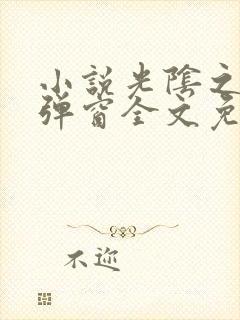 小説光陰之
彈窗全文免
不邇